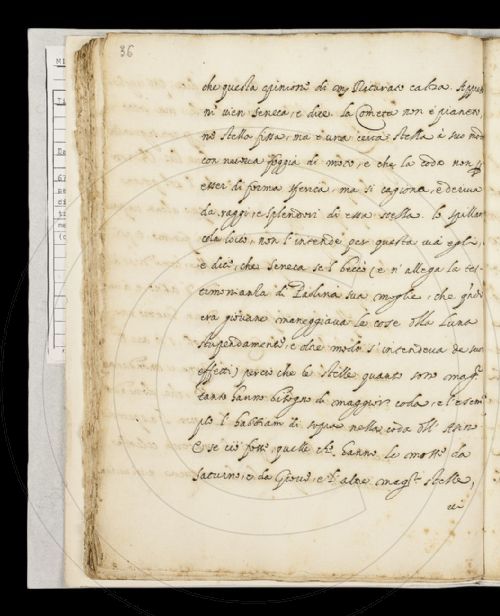 36
che questa opinione di mr Naturaco calza. Appres
ni vien Seneca, e dice la Cometa non è pianeta,
nè stella fissa, ma è una certa stella à suo modo
con nuova foggia di moto, e che la coda non
esser di forma sferica, ma si cagiona, e deriva
da raggi, e splendori di essa stella. Io
loco, non l'intende per questa via egli,
e dice, che Seneca se l' beccò (e n' allega la tes-
timonianza di Paolina sua moglie, che
era giovane maneggiava le cose della Luna
stupendamente, e oltre modo s' intendeva de suoi
effetti) perciò che le stelle quanto son magri
tanto hanno bisogno di maggior coda, e l' esem
pio l' habbiam di sopra nella coda dell' Asino
E se ciò fosse quelle che hanno le moto da
Saturno, e da Giove, e l' altre magri stelle,